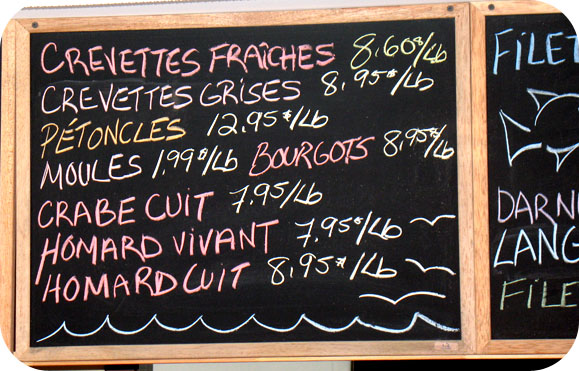 CREVETTES FRAÎCHES 8.60$/Lb
CREVETTES GRISES 8,95$/Lb
PÉTONCLES 12,95$/Lb
MOULES 1,99$/Lb BOURGOTS 8,95$/Lb
CRABE CUIT 7,95/Lb
HOMARD VIVANT 7,95$/Lb
HOMARD CUIT 8,95$/Lb
FILET
DARN
LANG
FILE